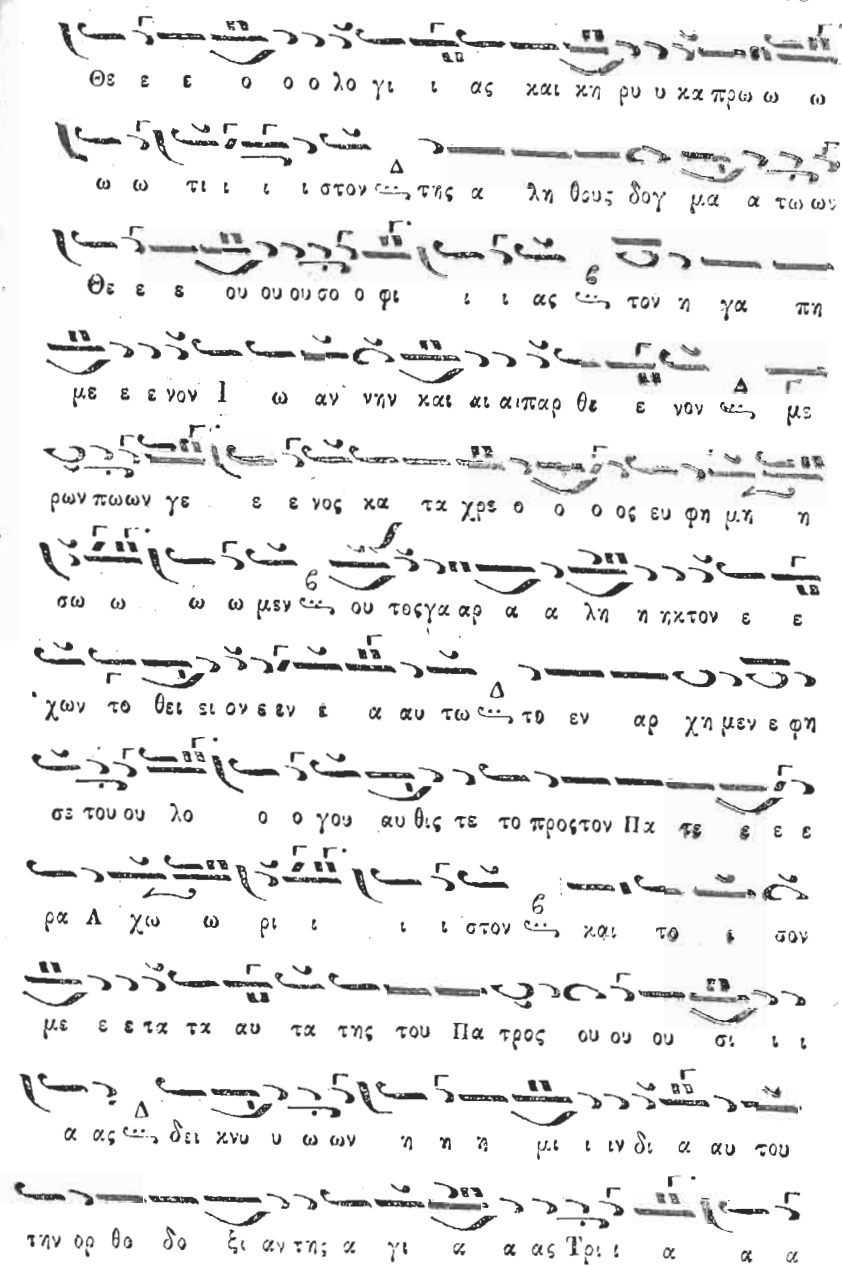 Θε ε ε ο ο ο λο γι ι ας και κη ρυ υ κα πρω ω ω
ω ω τι ι ι ι στον Δ της α λη θους δογ μα α τω ων
Θε ε ε ου ου ου σο ο φι ι ι ας τον η γα πη
με ε ε νον Ι ω αν νην και αι αι παρ θε ε νον Δ με
ρων πω ων γε ε ε νος κα τα χρε ο ο ο ος ευ φη μη η
σω ω ω ω μεν ου τος γα αρ α α λη η ηκτον ε ε
χων το θει ει ον ε εν ε α αυ τω Δ το εν αρ χη μεν ε φη
σε του ου λο ο ο γου αυ θις τε το προς τον Πα τε ε ε ε
ρα Α χω ω ρι ι ι ι στον και το ι σον
με ε ε τα τα αυ τα της του Πα τρος ου ου ου σι ι ι
α ας Δ δει κνυ υ ω ων η η η μι ι ιν δι α αυ του
την ορ θο δο ξι αν της α γι α α ας Τρι ι α α α